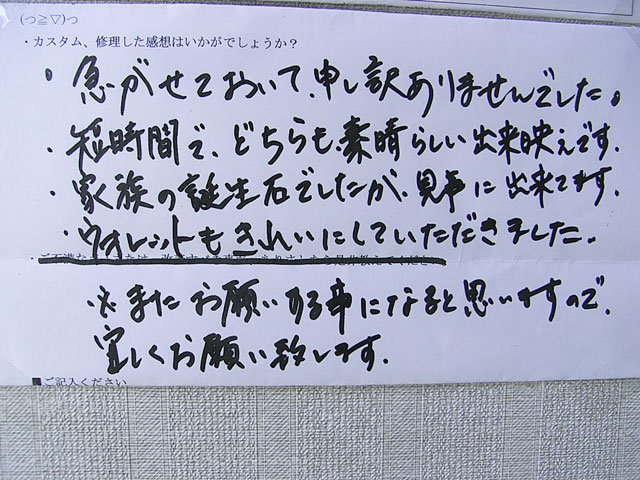 (つ≧▽)つ
・カスタム、修理した感想はいかがでしょうか？
・急がせておいて、申し訳ありませんでした。
・短時間で、どちらも素晴らしい出来映えです。
・家族の誕生石でしたが、見事に出来てます。
・ウオレットもきれいにしていただきました。
※またお願いする事になると思いますので、
宜しくお願い致します。
■ご記入ください